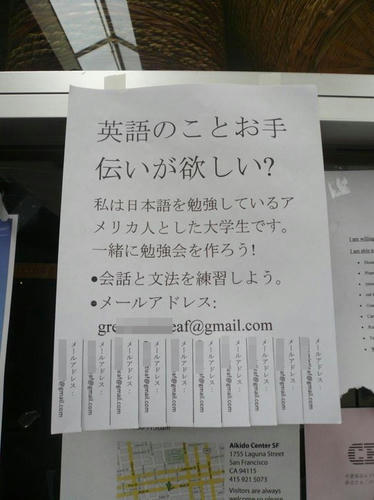 英語のことお手
伝いが欲しい?
私は日本語を勉強しているア
メリカ人とした大学生です。
一緒に勉強会を作ろう!
●会話と文法を練習しよう。
●メールアドレス:
gre eaf@gmail.com
メールアドレス:
@gmail.com
メールアドレス:
eaf@gmail.com
メールアドレス:
eaf@gmail.com
メールアドレス:
eaf@gmail.com
メールアドレス:
eaf@gmail.com
メールアドレス:
eaf@gmail.com
メールアドレス:
eaf@gmail.com
メールアドレス:
eaf@gmail.com
メールアドレス:
eaf@gmail.com
I am willing
I am able
Aikido Center SF
1755 Laguna Street
San Francisco
CA 94115
415 921 5073
Visitors are always